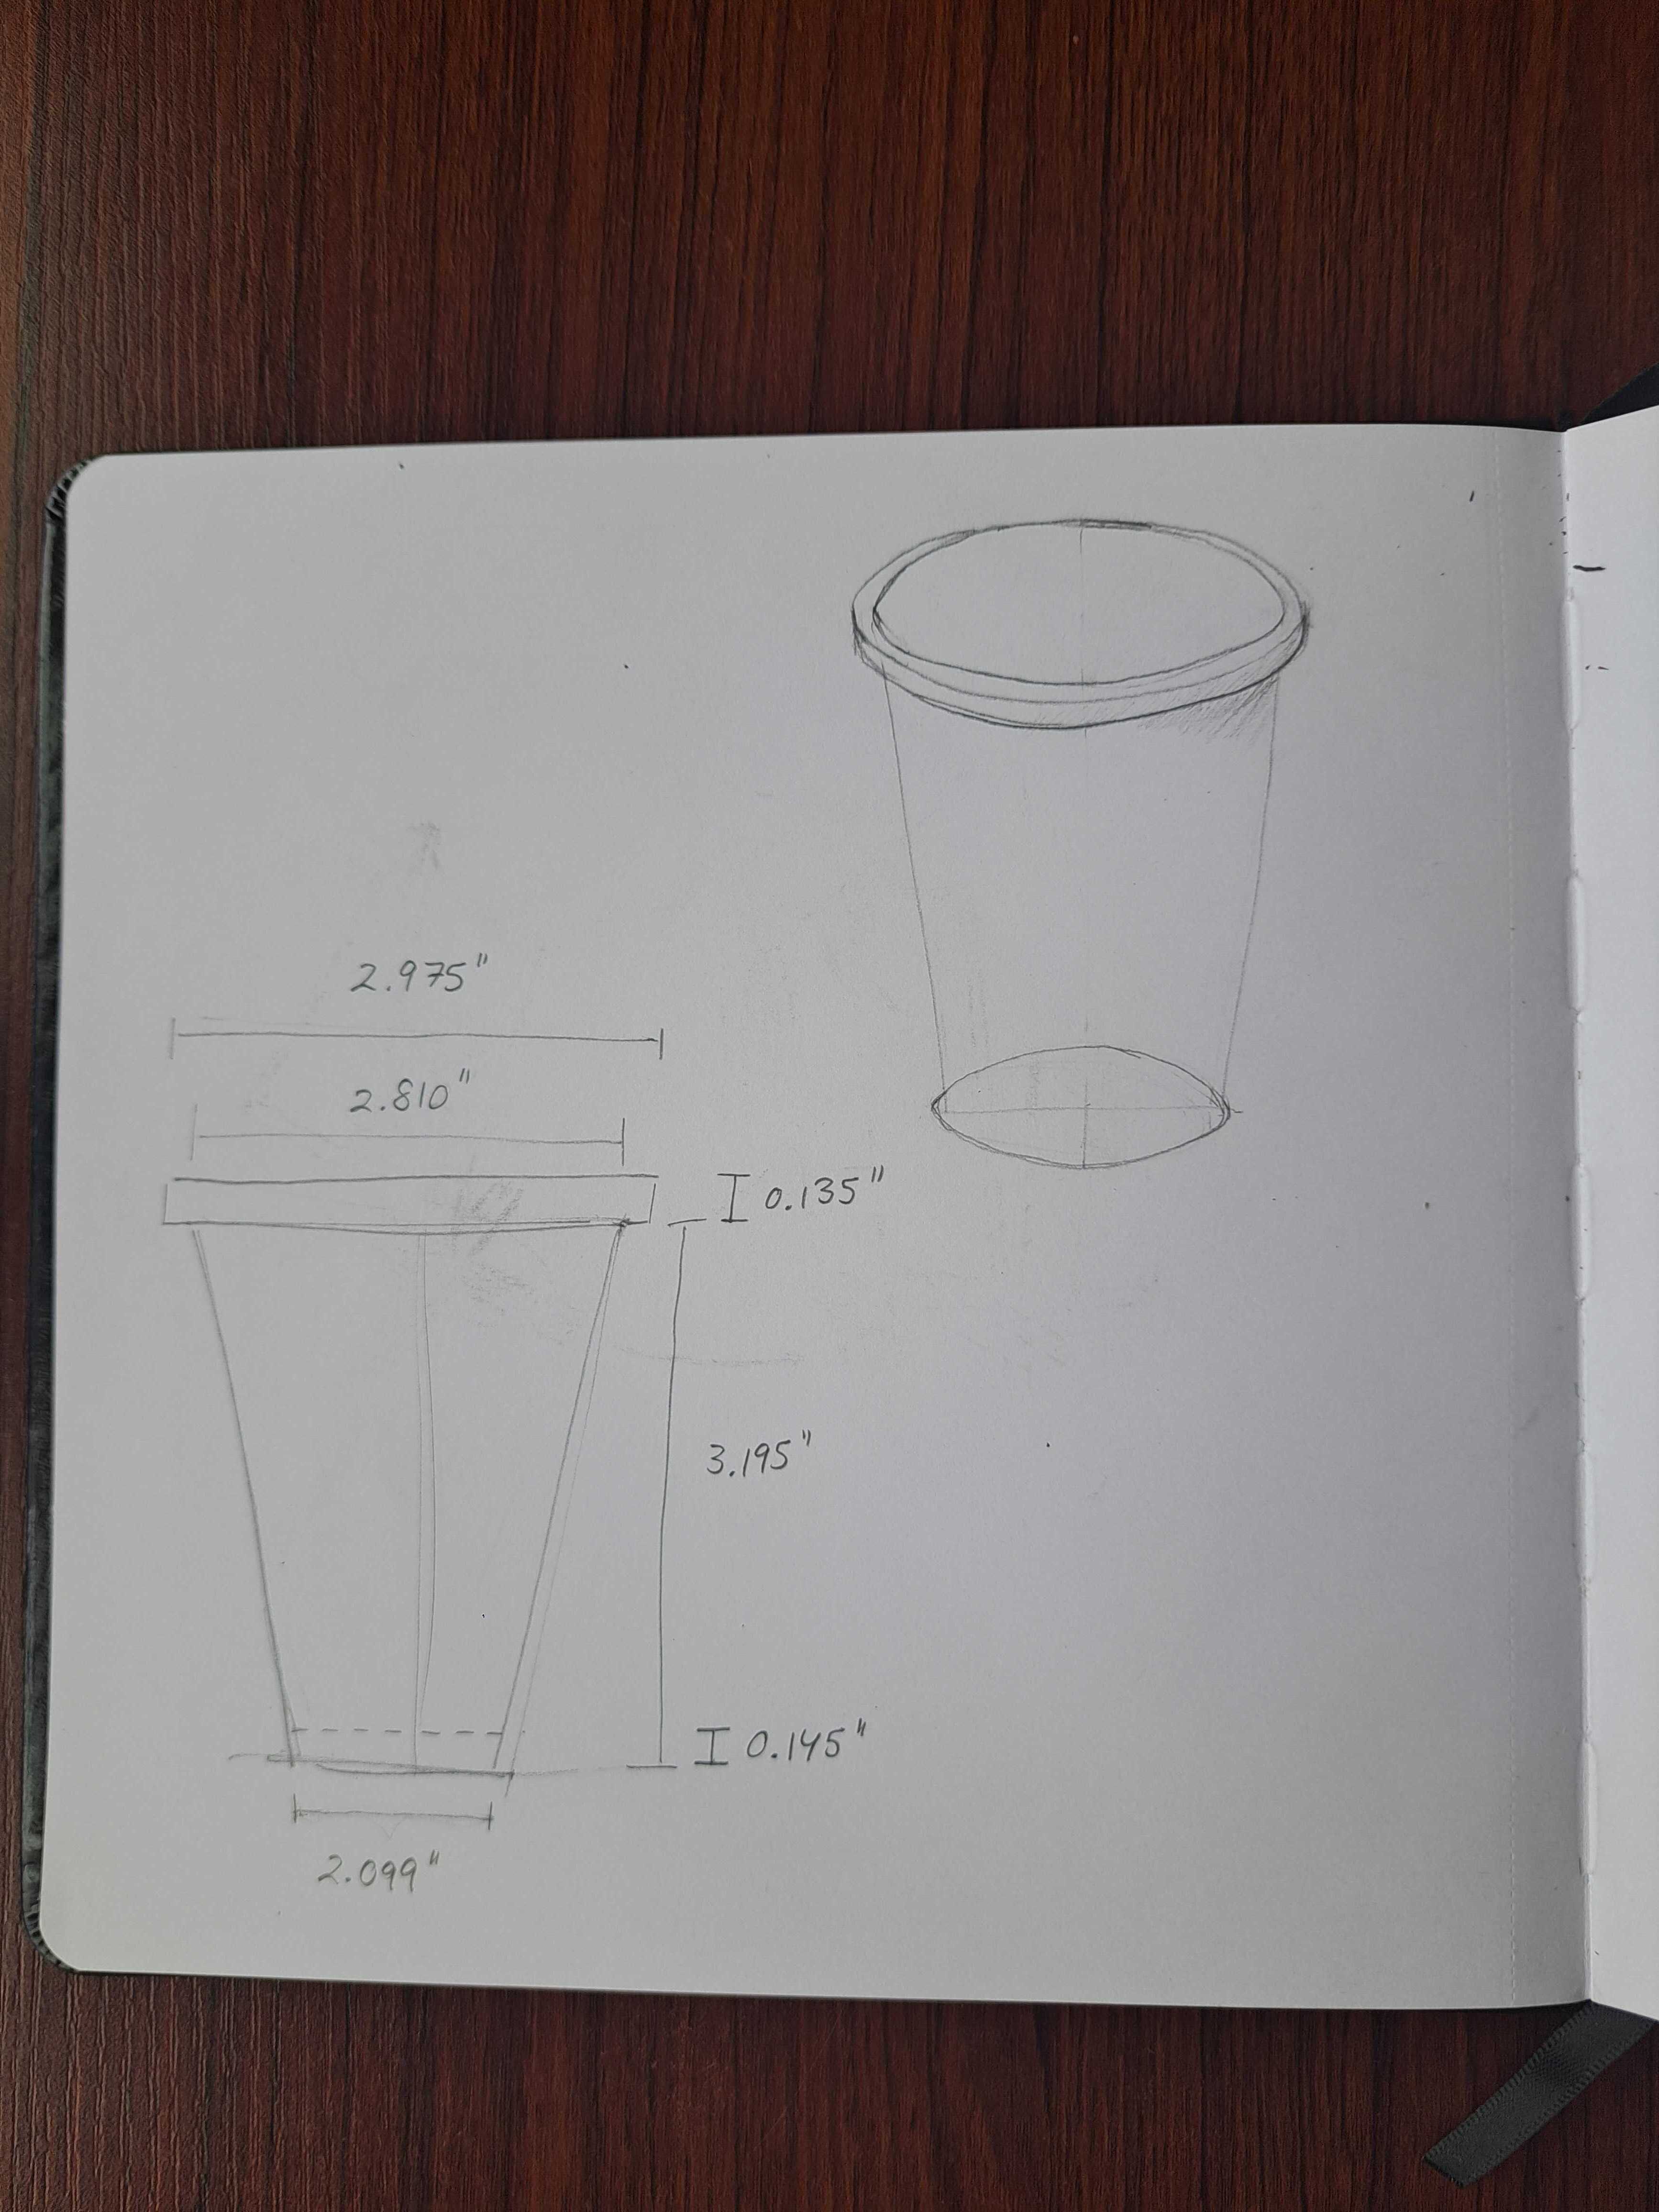 2.975"
2.810"
0.135"
3.195"
0.145"
2.099"